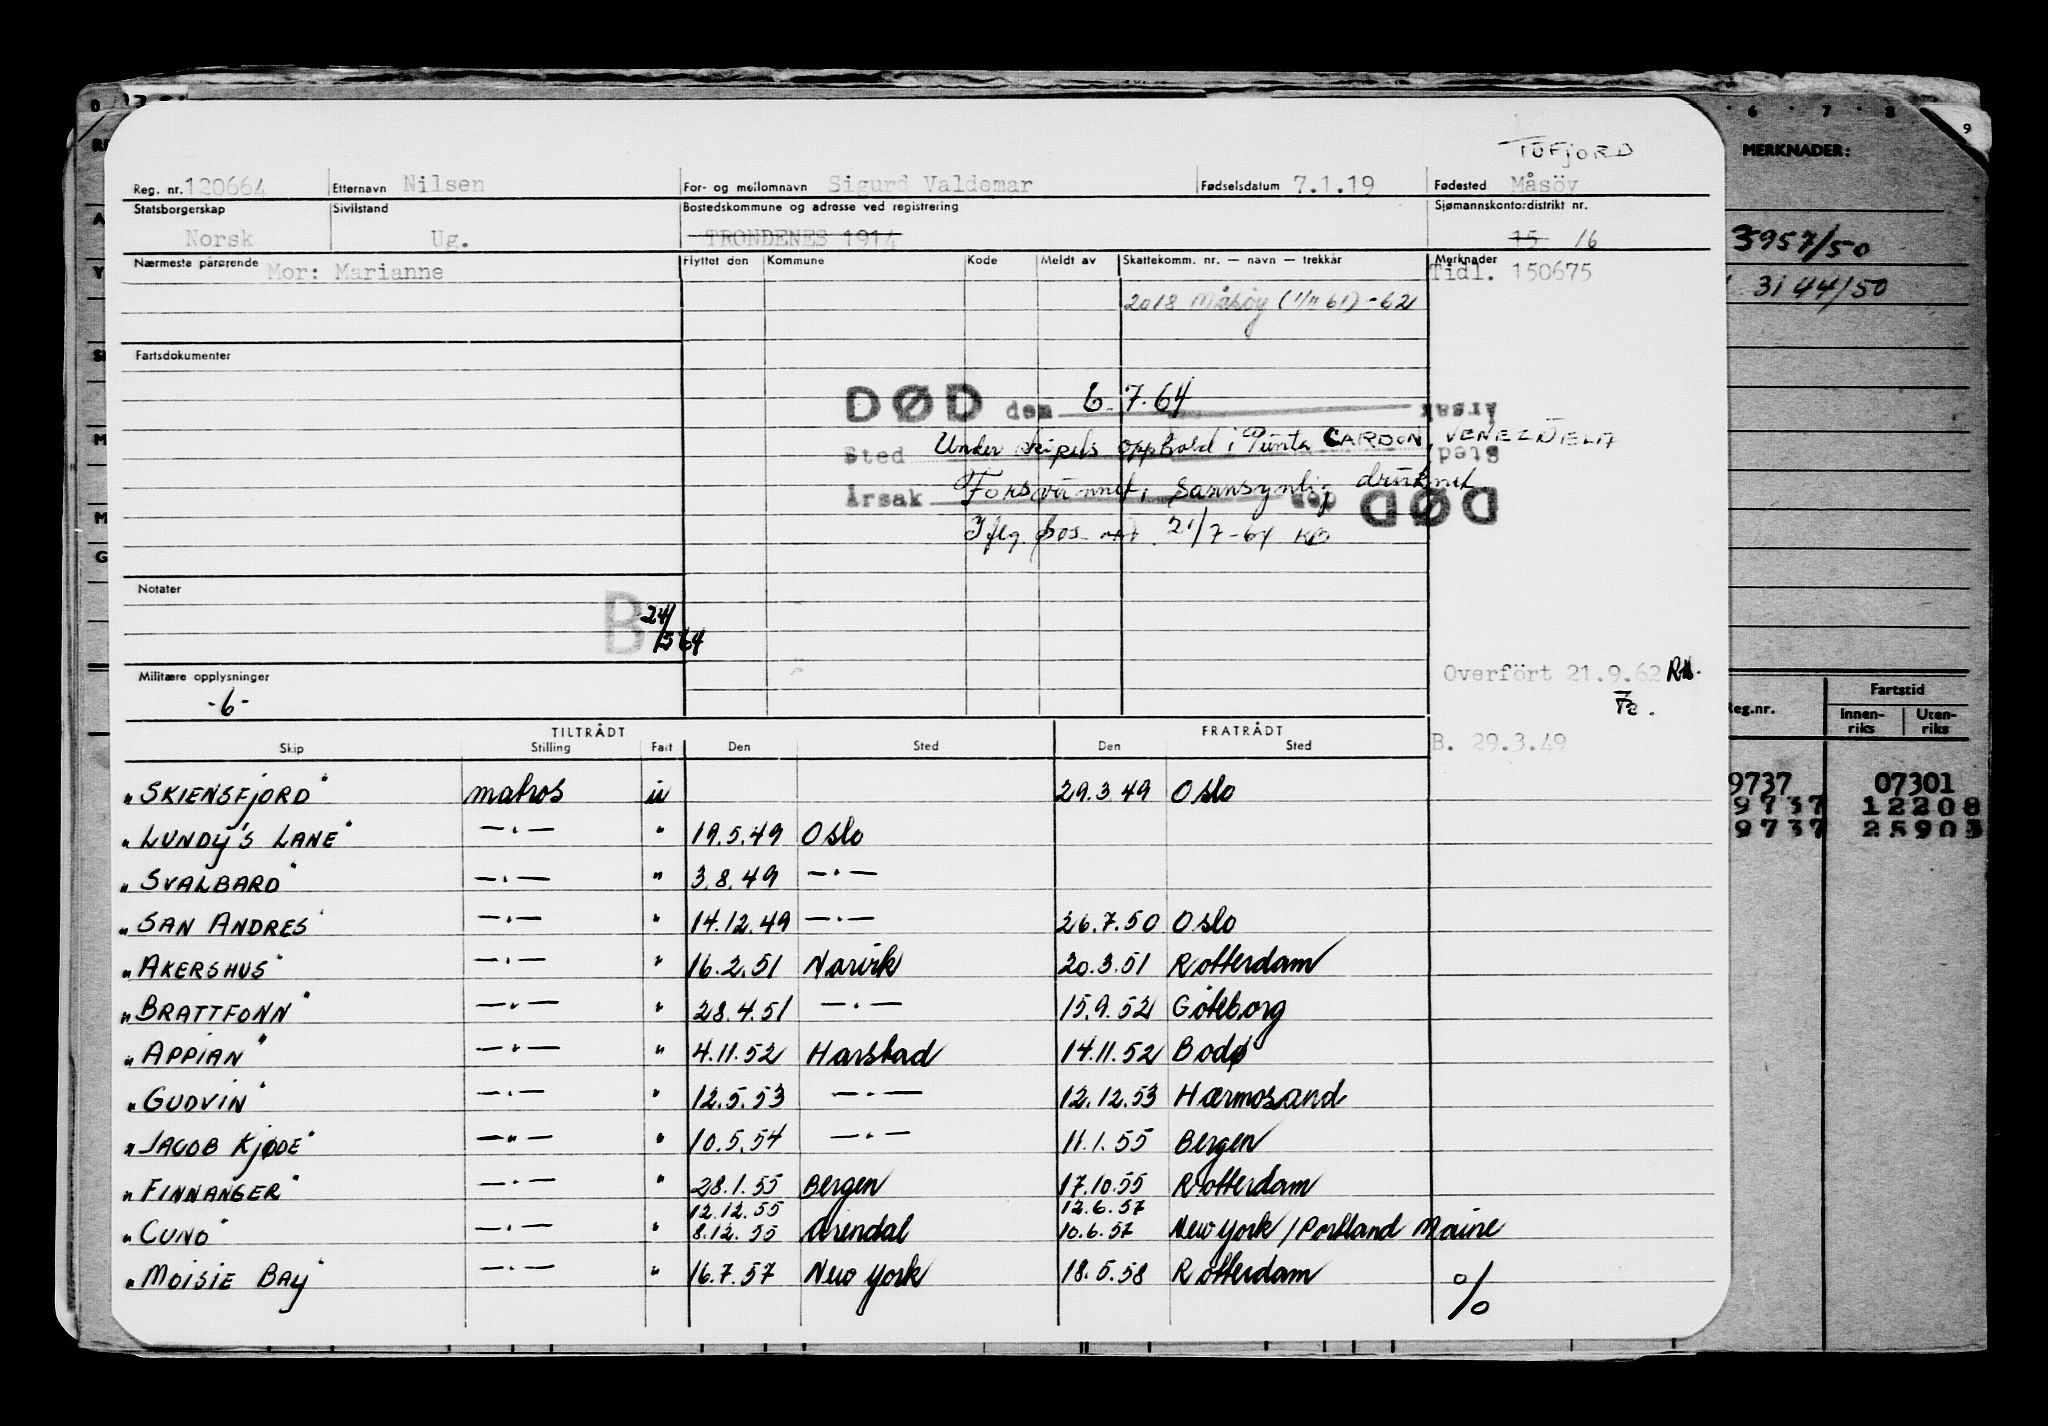 TUFJORD
Reg. nr. 120664 Etternavn Nilsen For- og mellomnavn Sigurd Valdemar Fødselsdatum 7.1.19 Fødested Måsöy
Statsborgerskap Sivilstand Bostedskommune og adresse ved registrering Sjømannskontordistrikt nr.
Norsk Ug. TRONDENES 1914 15 16
Nærmeste pårørende Mor: Marianne Flyttet den Kommune Kode Meldt av Skattekomm. nr. — navn — trekkår Merknader
Tidl. 150675
2018 Måsøy (1/11 61) - 62
Fartsdokumenter
DØD den 6.7.64 Årsak
Sted Under skipets opphold i Punta CARDON, VENEZUELA Sted
Årsak Forsvunnet, sannsynlig druknet den DØD
Iflg. 21/7-64
Notater
B 24/5 64
Militære opplysninger
-6-
Overfört 21.9.62
B. 29.3.49
TILTRÅDT FRATRÅDT
Skip Stilling Fart Den Sted Den Sted
"SKIENSFJORD" matros u 29.3.49 Oslo
"LUNDY'S LANE" —"— " 19.5.49 Oslo
"SVALBARD" —"— " 3.8.49 —"—
"SAN ANDRES" —"— " 14.12.49 —"— 26.7.50 Oslo
"AKERSHUS" —"— " 16.2.51 Narvik 20.3.51 Rotterdam
"BRATTFONN" —"— " 28.4.51 —"— 15.9.52 Göteborg
"APPIAN" —"— " 4.11.52 Harstad 14.11.52 Bodø
"GUDVIN" —"— " 12.5.53 —"— 12.12.53 Hærnosand
"JACOB KJØDE" —"— " 10.5.54 —"— 11.1.55 Bergen
"FINNANGER" —"— " 28.1.55 Bergen 17.10.55 Rotterdam
12.12.55 12.6.57
"CUNO" —"— " 8.12.55 Arendal 10.6.57 New York / Portland Maine
"MOISIE BAY" —"— " 16.7.57 New York 18.5.58 Rotterdam
%
6 7 8 9
MERKNADER:
3957/50
3144/50
Reg.nr. Fartstid
Innen-riks Uten-riks
9737 07301
9737 12208
9737 25905